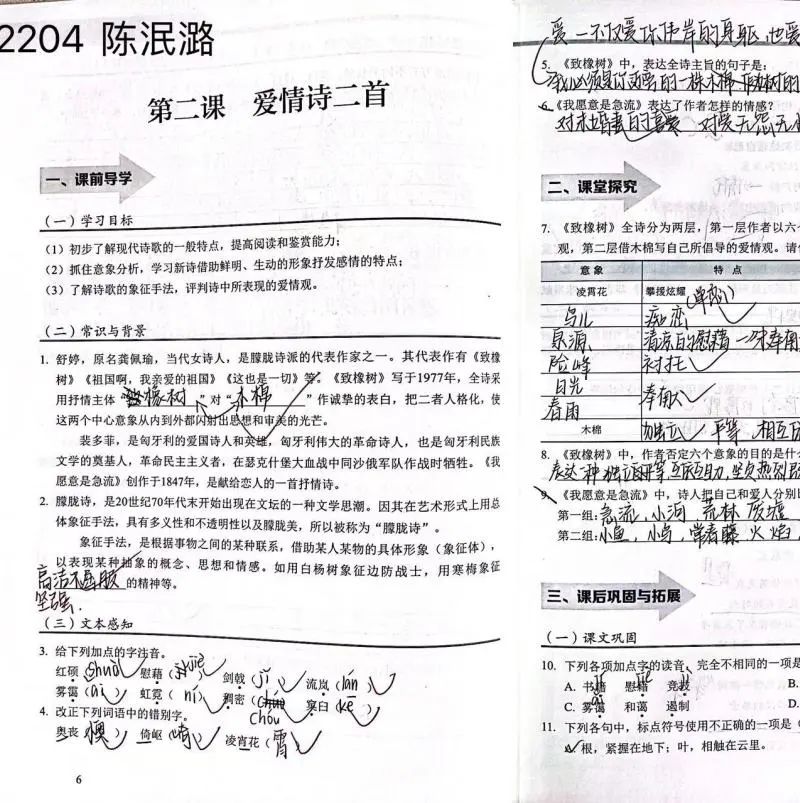 2204 陈泯潞
第二课 爱情诗二首
一、课前导学
(一)学习目标
(1)初步了解现代诗歌的一般特点,提高阅读和鉴赏能力;
(2)抓住意象分析,学习新诗借助鲜明、生动的形象抒发感情的特点;
(3)了解诗歌的象征手法,评判诗中所表现的爱情观。
(二)常识与背景
1. 舒婷,原名龚佩瑜,当代女诗人,是朦胧诗派的代表作家之一。其代表作有《致橡
树》《祖国啊,我亲爱的祖国》《这也是一切》等。《致橡树》写于1977年,全诗采
用抒情主体“橡树”对“木棉”作诚挚的表白,把二者人格化,使
这两个中心意象从内到外都闪射出思想和审美的光芒。
裴多菲,是匈牙利的爱国诗人和英雄,匈牙利伟大的革命诗人,也是匈牙利民族
文学的奠基人,革命民主主义者,在瑟克什堡大血战中同沙俄军队作战时牺牲。《我
愿意是急流》创作于1847年,是献给恋人的一首抒情诗。
2. 朦胧诗,是20世纪70年代末开始出现在文坛的一种文学思潮。因其在艺术形式上用总
体象征手法,具有多义性和不透明性以及朦胧美,所以被称为“朦胧诗”。
象征手法,是根据事物之间的某种联系,借助某人某物的具体形象(象征体),
以表现某种抽象的概念、思想和情感。如用白杨树象征边防战士,用寒梅象征
高洁不屈服 的精神等。
坚强.
(三)文本感知
3. 给下列加点的字注音。
红硕(shuò) 慰藉(jiè) 剑戟(jǐ) 流岚(lán)
雾霭(ǎi) 虹霓(ní) 稠密(chóu) 窠臼(kē)
4. 改正下列词语中的错别字。
奥丧(懊) 倚岖(崎) 凌宵花(霄)
6
爱—不仅爱你伟岸的身躯,也爱
5. 《致橡树》中,表达全诗主旨的句子是:
我必须是你近旁的一株木棉,
6. 《我愿意是急流》表达了作者怎样的情感?
对未婚妻的喜爱 对爱无怨无
二、课堂探究
7. 《致橡树》全诗分为两层,第一层作者以六个
观,第二层借木棉写自己所倡导的爱情观。请
意象 特点
凌霄花 攀援炫耀
鸟儿 痴恋(单向)
泉源 清凉的慰藉 一味奉
险峰 衬托
日光
春雨 奉献
木棉 独立 平等,相互
8. 《致橡树》中,作者否定六个意象的目的是什
表达一种独立平等互助,坚贞热烈
9. 《我愿意是急流》中,诗人把自己和爱人分别
第一组:急流,小河 荒林 废墟
第二组:小鱼,小鸟,常春藤 火焰,
三、课后巩固与拓展
(一)课文巩固
10. 下列各项加点字的读音,完全不相同的一项是
A. 书籍 慰藉 竞技 B.
C. 雾霭 和蔼 遏制 D.
11. 下列各句中,标点符号使用不正确的一项是(
A. 根,紧握在地下;叶,相触在云里。